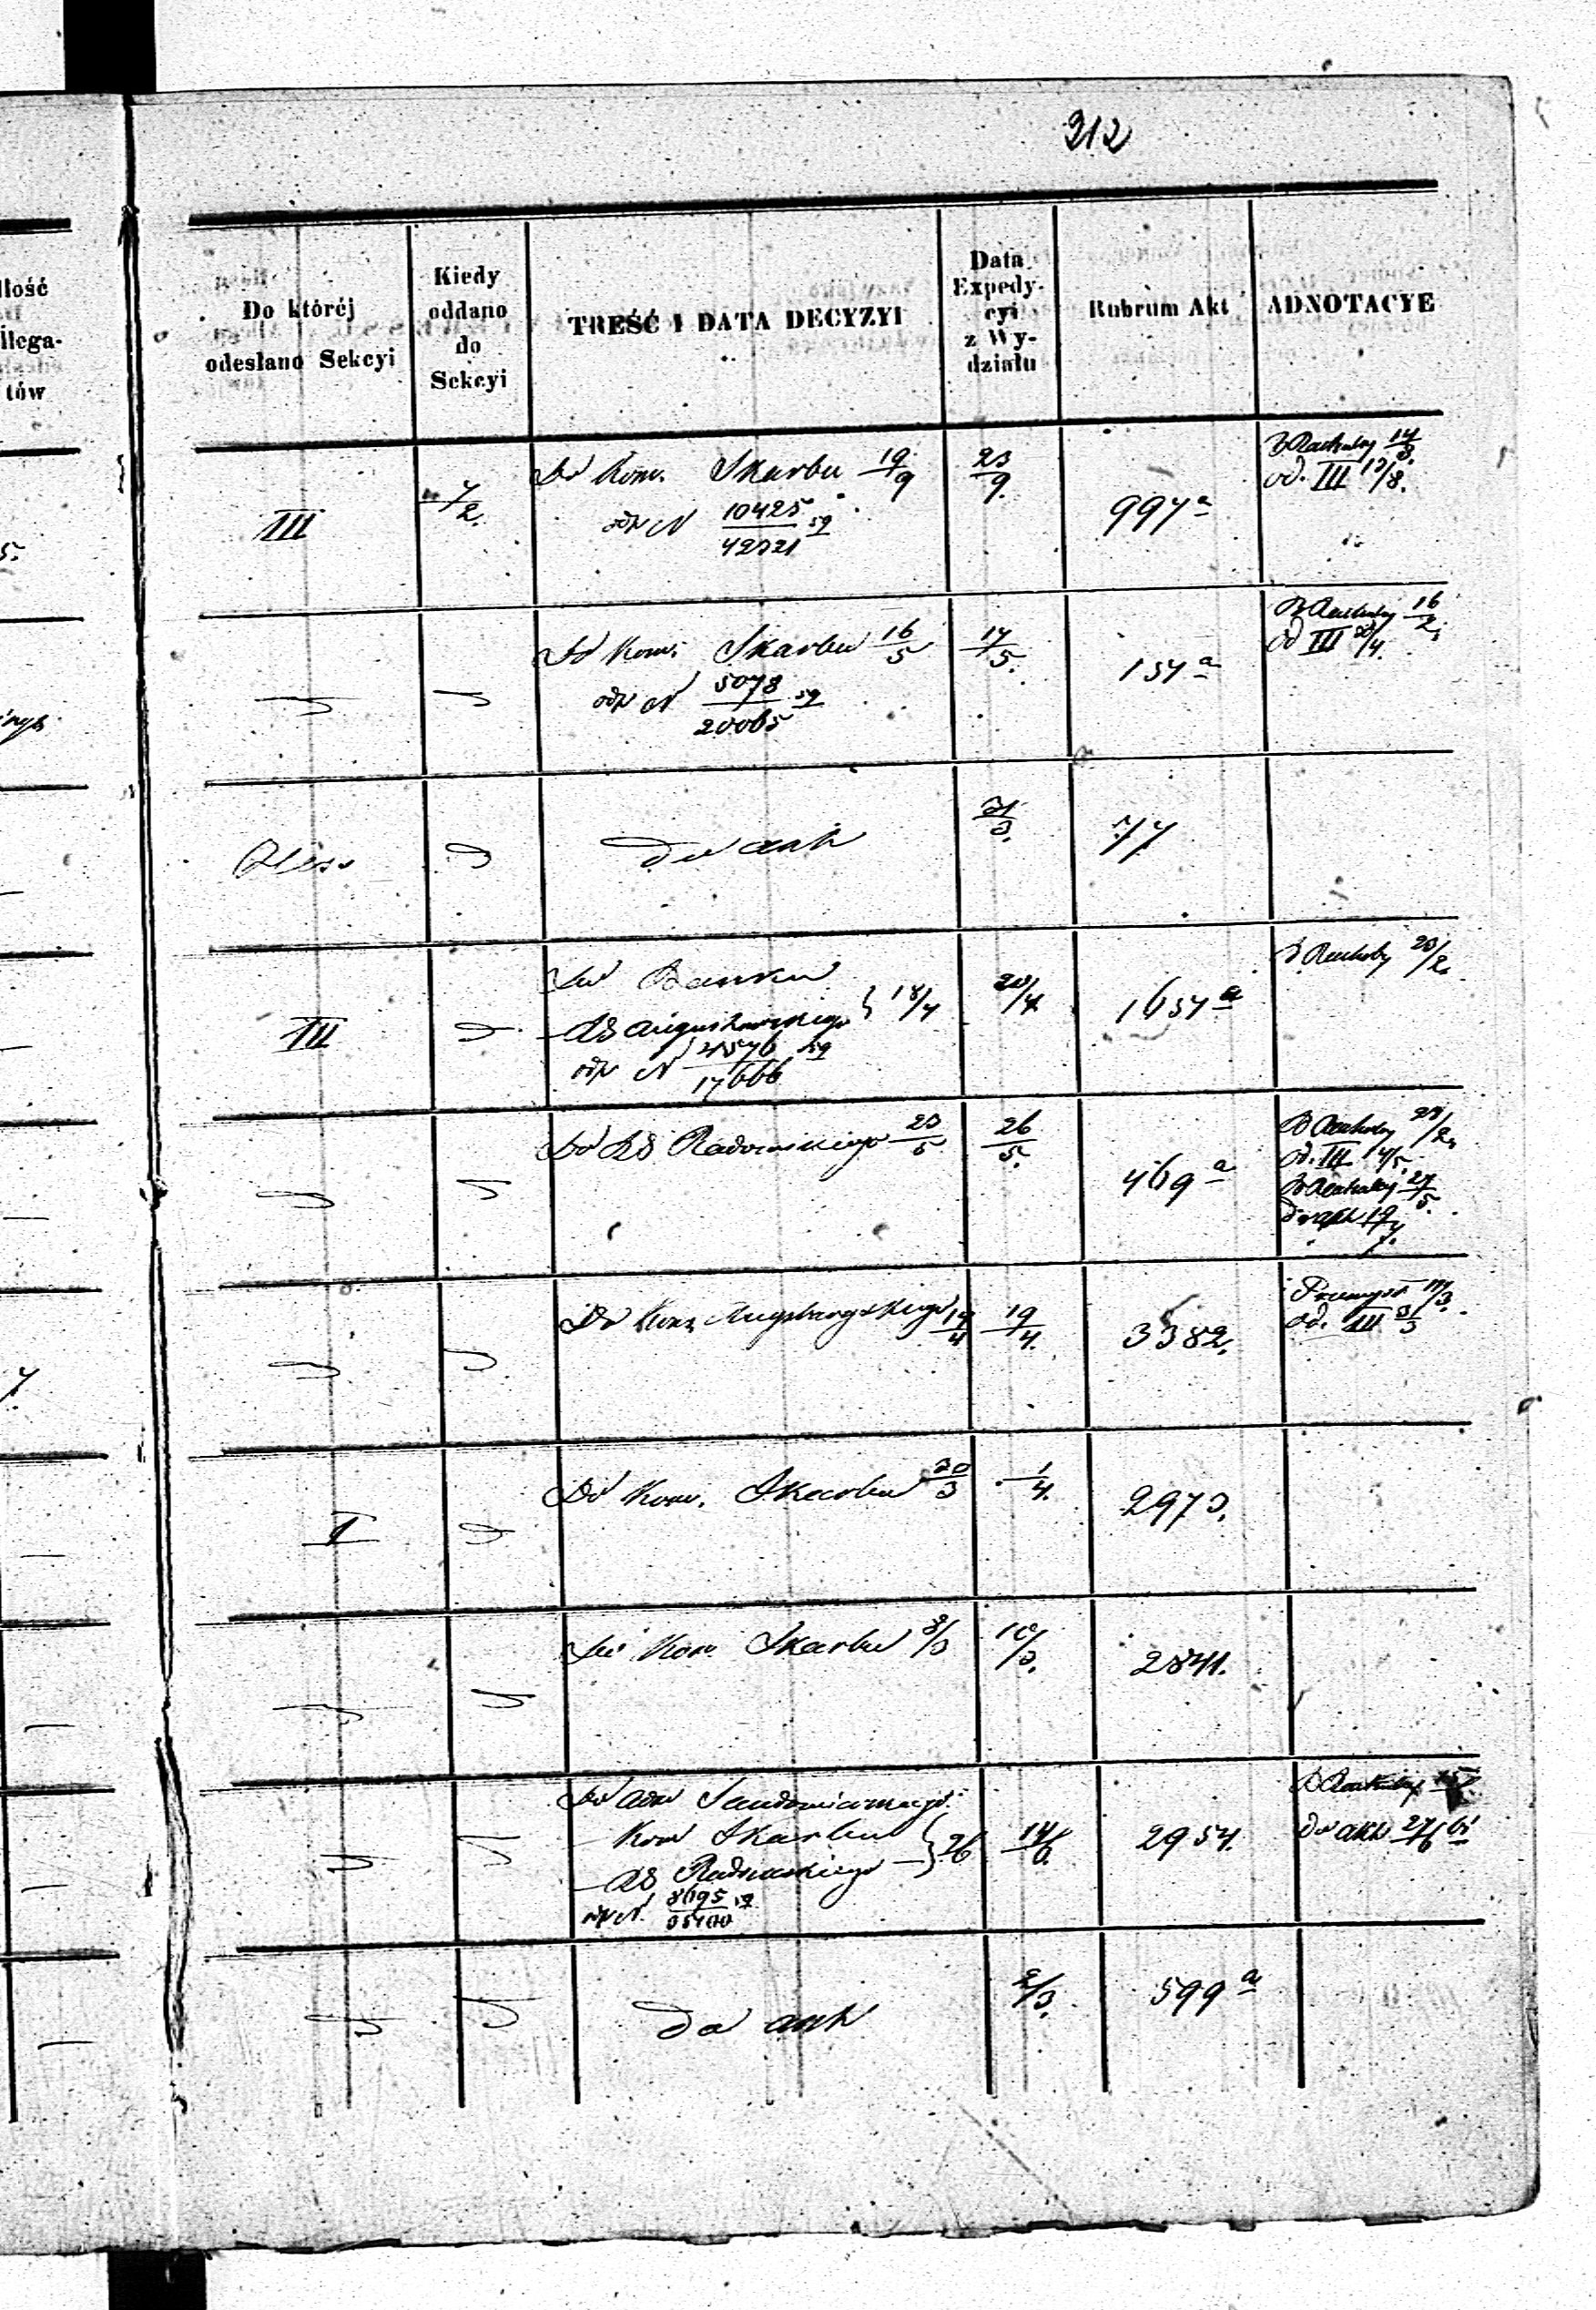 212
Ilość
Allega-
tów
Do któréj
odesłano Sekcyi
Kiedy
oddano
do
Sekcyi
TREŚĆ I DATA DECYZYI
Data
Expedy-
cyi
z Wy-
działu
Rubrum Akt
ADNOTACYE
III
7/2.
Do Kom. Skarbu 19/9
odp N 10425/42321 59
23/9.
997a
B Rachuby 14/3.
od. III 13/8.
Do Kom. Skarbu 16/5
odp N 5078/20065 59
17/5.
157a
B Rachuby 16/2.
od III /4.
do akt
31/3.
77
III
Do Banku
RG Augustowskiego } 18/4
odp N 4576/17666 59
20/4.
1657a
B Rachuby 23/2.
Do RG Radomskiego 23/5
26/5.
469a
B Rachuby 24/2.
od. III 4/5.
B Rachuby 27/5.
do akt 19/7.
Do Kons. Augsburgskiego 17/4
19/4.
3382.
Przemysł /3.
od. III 3/3
I
Do Kom. Skarbu 30/3
1/4.
2973.
Do Kom. Skarbu 8/3
10/3.
2841.
Do Adm Sandomierskiego
Kom Skarbu } 26
RG Radomskiego
odp N. 8695/35400 59
14/6.
2954.
B Rachuby
do akt 27/6 61
do akt
2/3.
599a